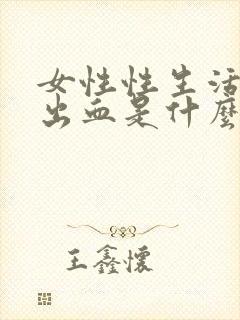 女性性生活
出血是什麼
王鑫懷